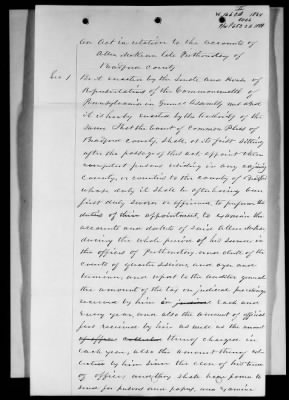 An Act in relation to the accounts of
Allen McKean late Prothonotary of
Bradford County
Sec 1 Be it enacted by the Senate and House of
Representatives of the Commonwealth of
Pennsylvania in General Assembly met and
it is hereby enacted by the authority of the
same That the Court of Common Pleas of
Bradford county, shall, at its first sitting
after the passage of this act, appoint three
competent persons residing in any adjoining
county, or counties to the county of Bradford
whose duty it shall be after having been
first duly sworn or affirmed, to perform the
duties of their appointment, to examine the
accounts and dockets of said Allen McKean
during the whole period of his service in
the offices of Prothonotary, and clerk of the
courts of quarter sessions, and oyer and
terminer, and report to the auditor general
the amount of the tax on judicial proceedings
received by him in each and
every year, and also the amount of official
fees received by him as well as the amount
thereof charged in
each year; also the amount thereof
by him since the close of his term
of office, and they shall have power to
send for persons and papers, and examine